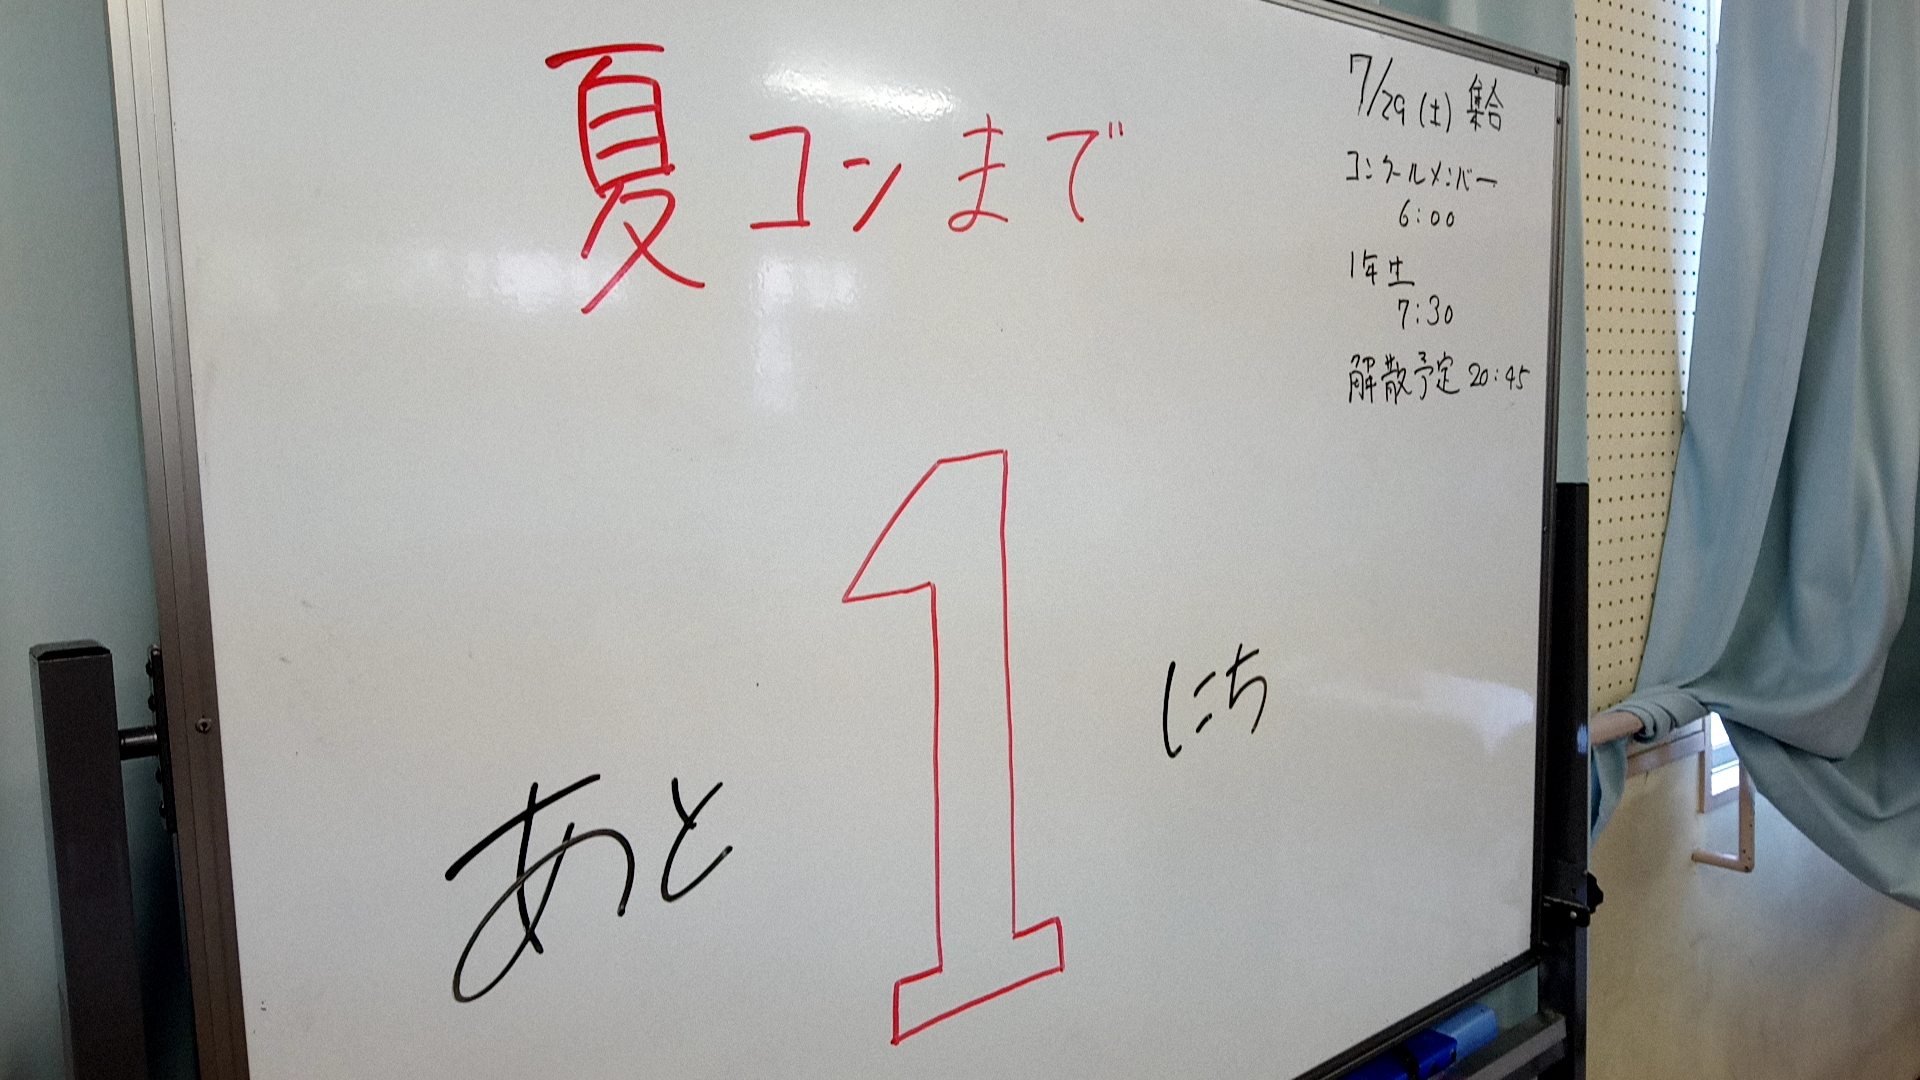 夏コンまで
あと1にち
7/29(土) 集合
コンクールメンバー
6:00
1年生
7:30
解散予定 20:45